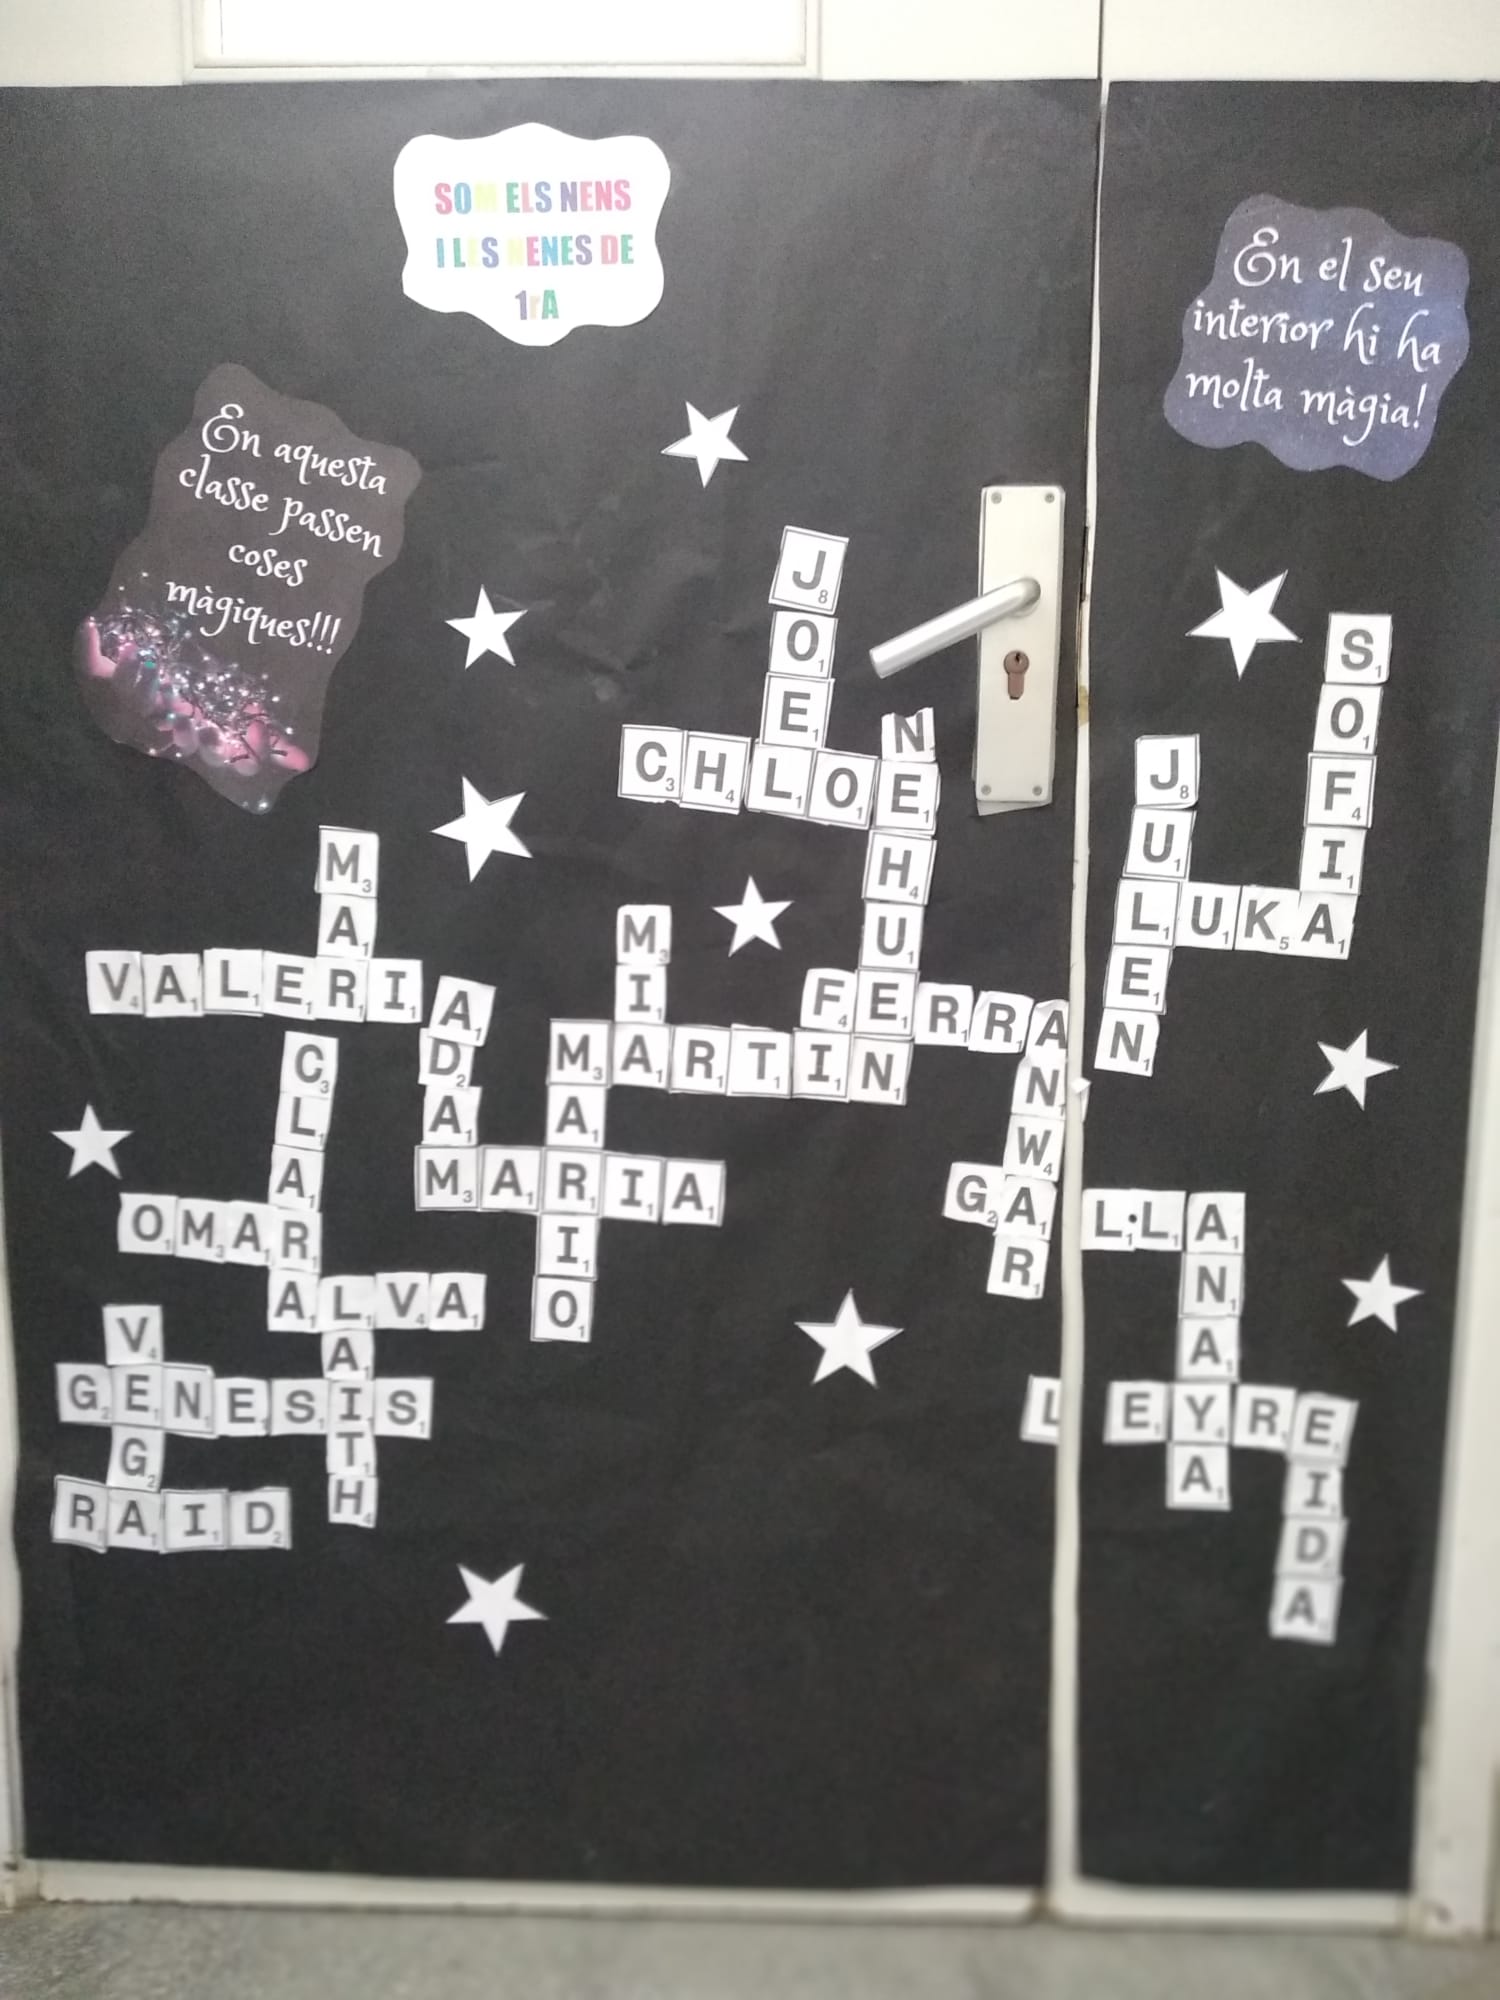 SOM ELS NENS
I LES NENES DE
1rA
En el seu
interior hi ha
molta màgia!
En aquesta
classe passen
coses
màgiques!!!
JOEL
CHLOE
NEHUEN
SOFIA
JULEN
LUKA
MAR
VALERIA
MIA
FERRA
MARTIN
ADAM
MARIO
MARIA
ANWAR
GAL·LA
CLARA
OMAR
ALVA
LAITH
VEGA
GENESIS
RAID
ANAYA
LEYRE
EIDA